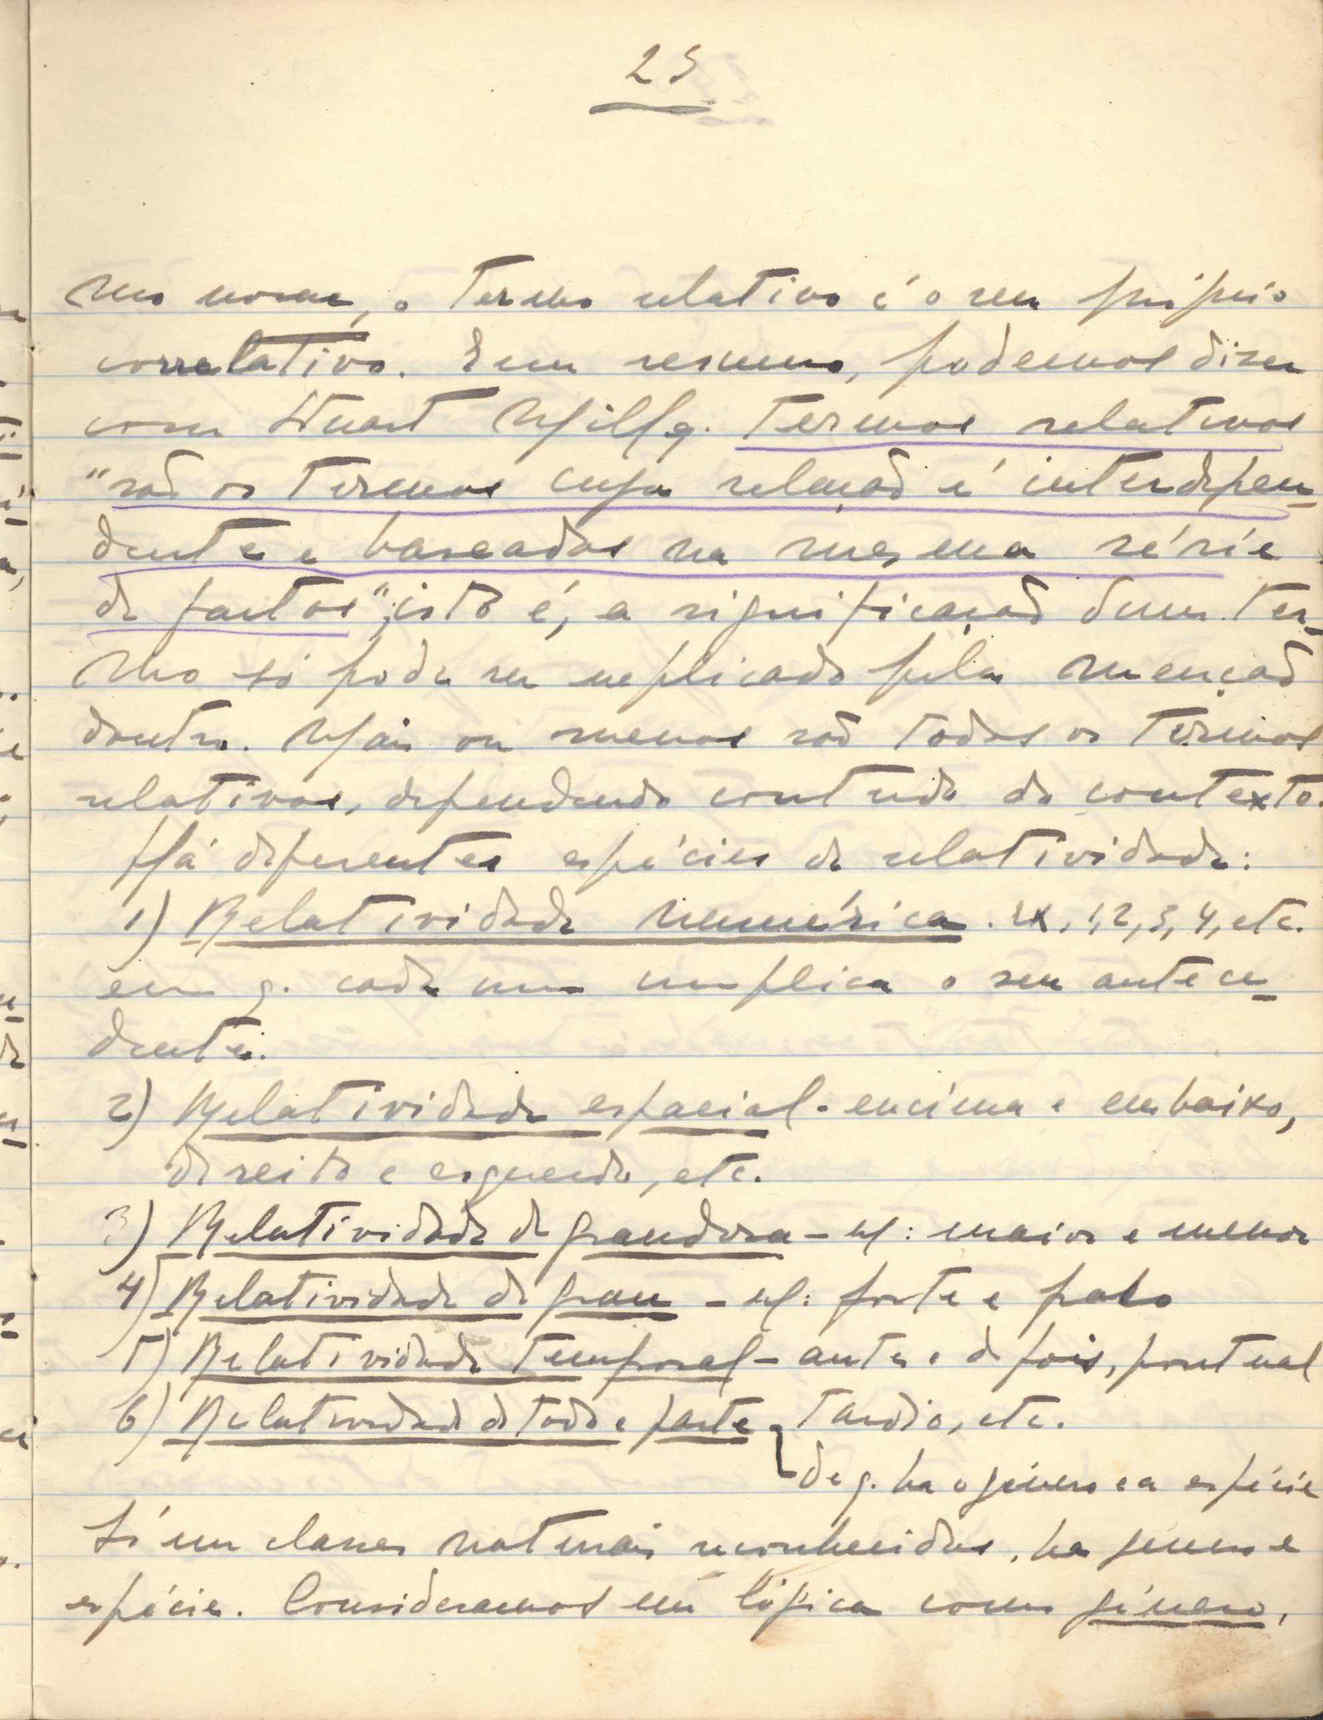 25
mo nome, o termo relativo é o seu próprio
correlativo. Em resumo, podemos dizer
com Stuart Mill q. termos relativos
"são os termos cuja relação é interdepen-
dente e baseados na mesma série
de factos", isto é, a significação dum ter-
mo só pode ser explicado pela menção
doutro. Mais ou menos são todos os termos
relativos, dependendo contudo do contexto.
Há diferentes espécies de relatividade:
1) Relatividade numérica. 1, 2, 3, 4, etc.
em q. cada um implica o seu antece-
dente.
2) Relatividade espacial - encima e embaixo,
direito e esquerdo, etc.
3) Relatividade de grandeza - ex: maior e menor
4) Relatividade de grau - ex: forte e fraco
5) Relatividade temporal - antes e depois, pontual
6) Relatividade de todo e parte tardio, etc.
de q. ha o género e a espécie
Só em classes naturais reconhecidas, ha genero e
espécie. Consideramos em lógica como género,